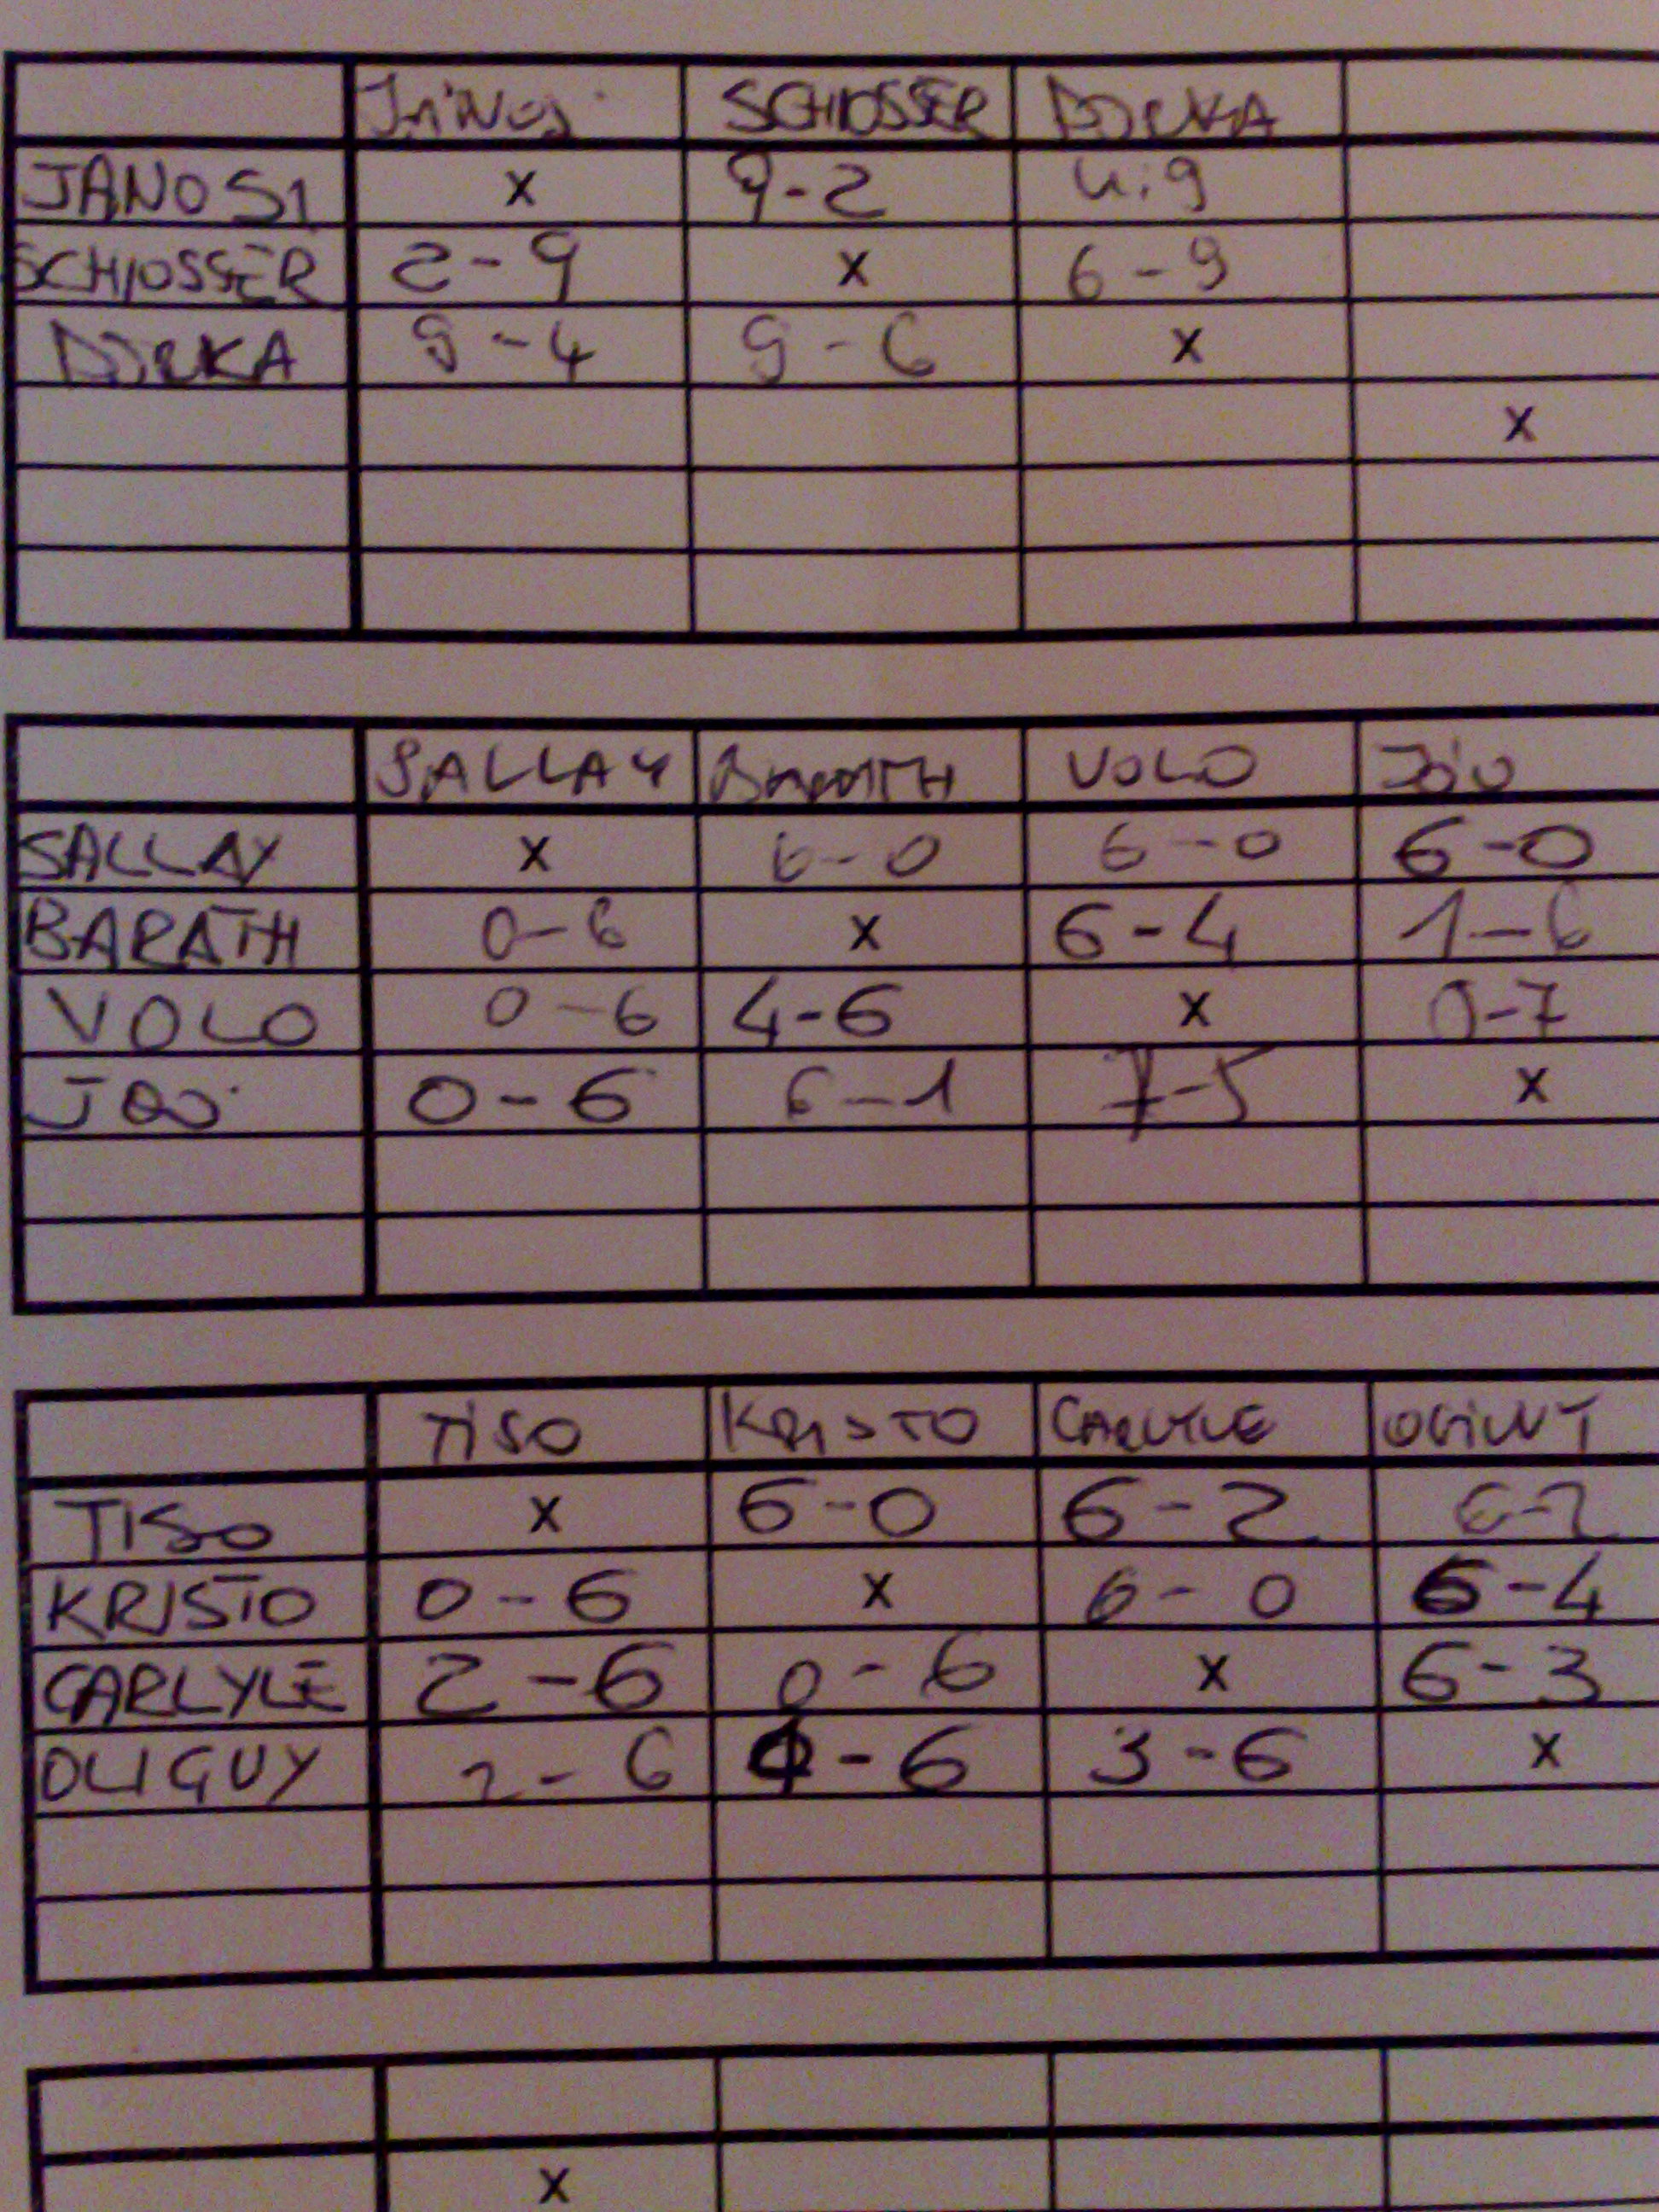 SCHIOSSER DJRKA
JANOSI x 9-2 4:9
SCHIOSSER 2-9 x 6-9
DJRKA 9-4 9-6 x
x
SALLAY BARATH VOLO JOO
SALLAY x 6-0 6-0 6-0
BARATH 0-6 x 6-4 1-6
VOLO 0-6 4-6 x 7
JOO 0-6 6-1 7-5 x
TISO KRISTO CARLYLE
TISO x 6-0 6-2 6-2
KRISTO 0-6 x 6-0 6-4
CARLYLE 2-6 0-6 x 6-3
OLIGUY 2-6 -6 3-6 x
x